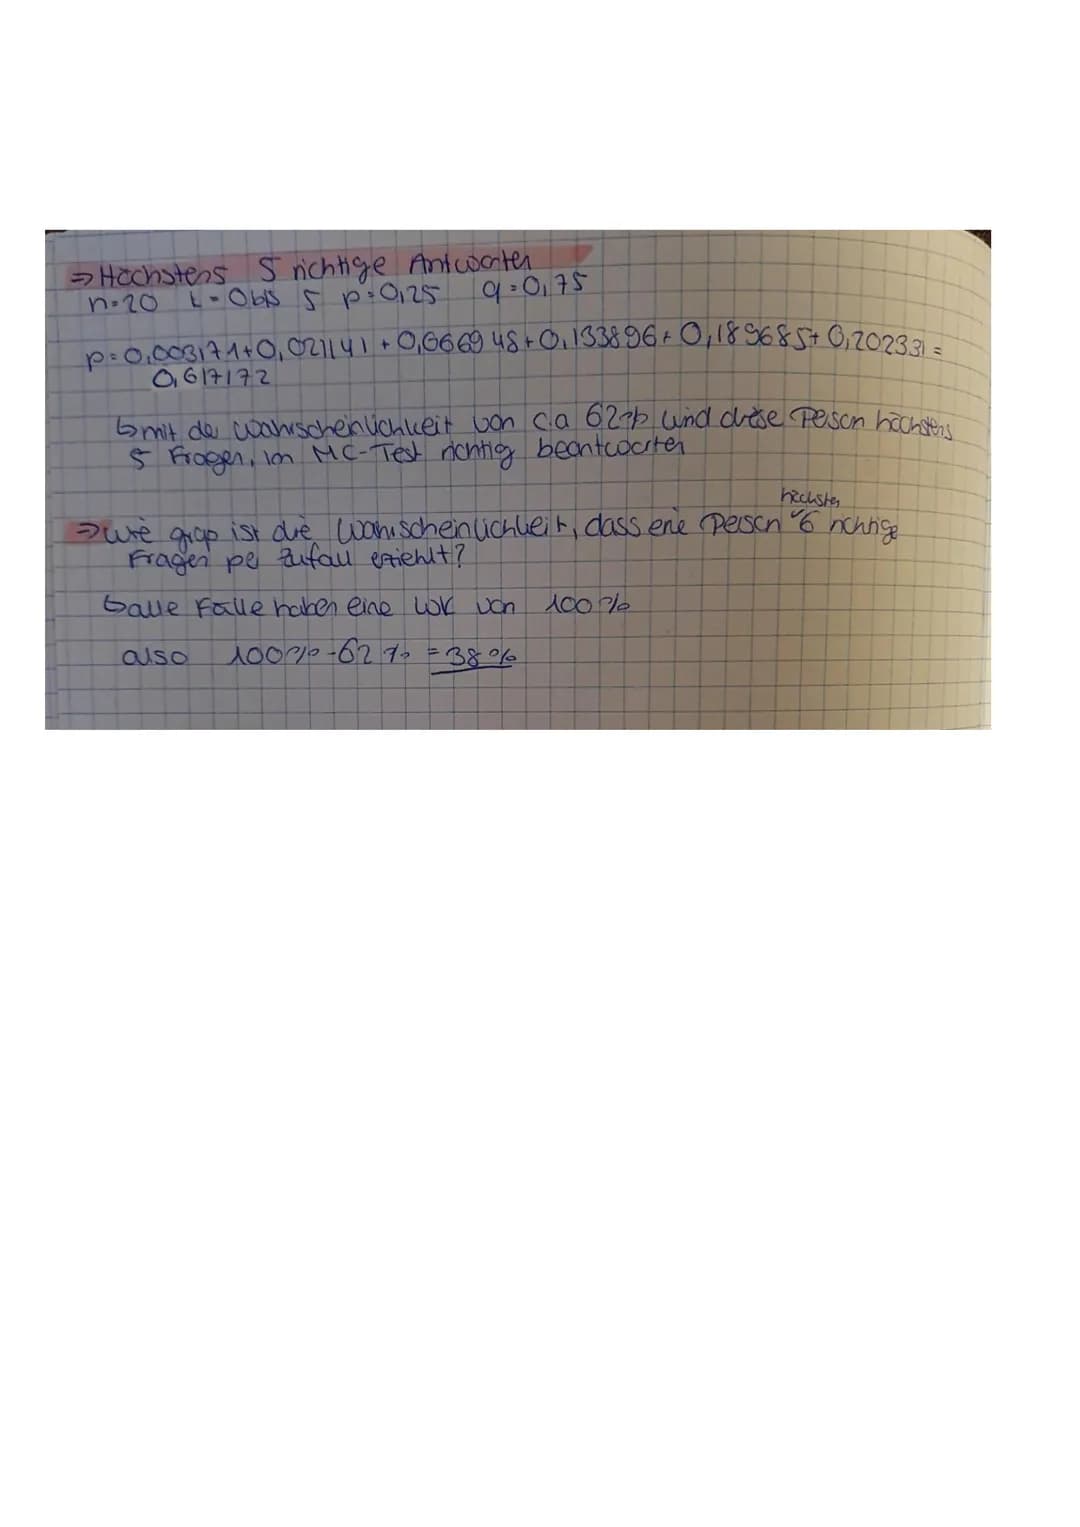 ⇒ Höchstens 5 richtige Antworten
n=20 k=0bis 5 p=0,25 q=0,75
p=0,003171+0,021141+0,066948+0,133896+0,189685+0,202331=
0,617172
↳ mit der Wahrscheinlichkeit von c.a 62% wird diese Person höchstens
5 Fragen, im MC-Test richtig beantworten
höchstens
⇒ wie groß ist die Wahrscheinlichkeit, dass eine Person 6 richtige
Fragen per Zufall erziehlt?
↳ alle Fälle haben eine WK von 100%
also 100%-62%=38%